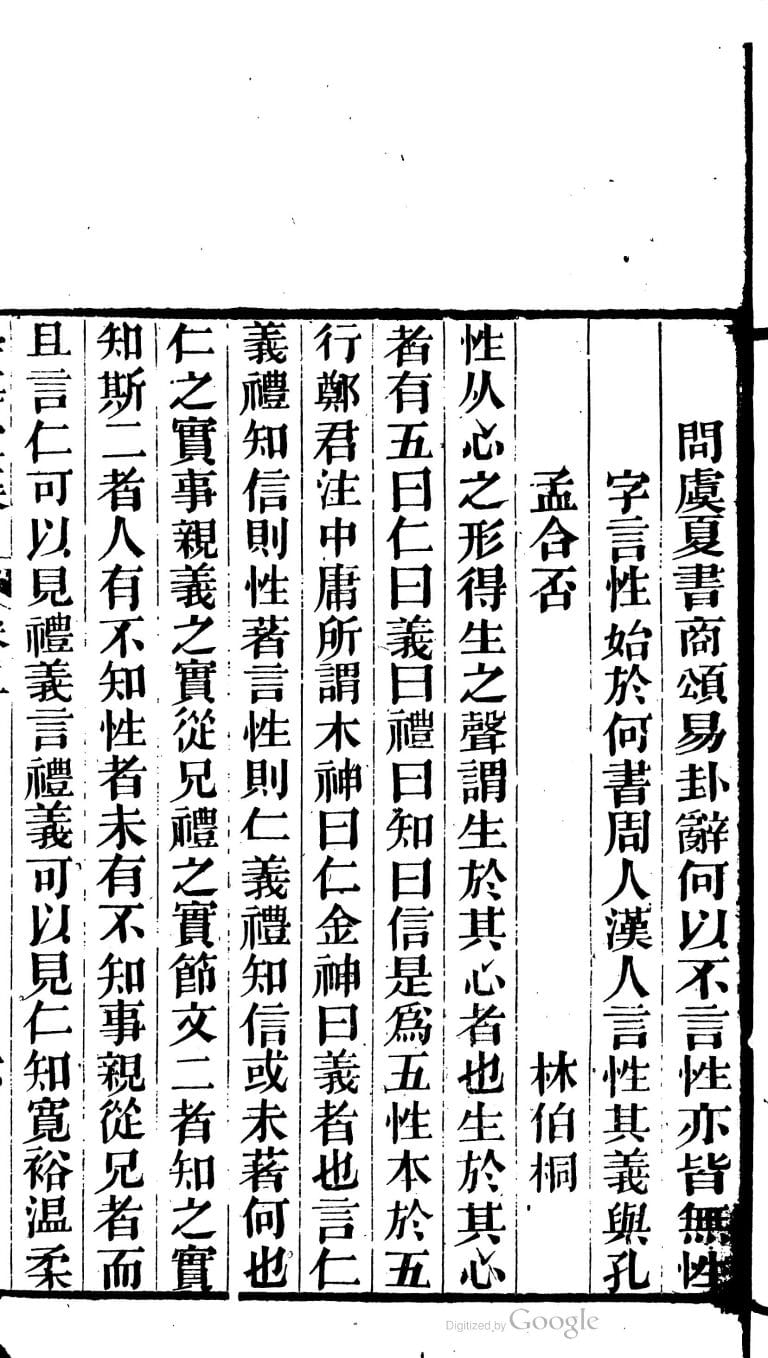 問虞夏書商頌易卦辭何以不言性亦皆無性
字言性始於何書周人漢人言性其義與孔
孟合否
林伯桐
性从心之形得生之聲謂生於其心者也生於其心
者有五曰仁曰義曰禮曰知曰信是爲五性本於五
行鄭君注中庸所謂木神曰仁金神曰義者也言仁
義禮知信則性著言性則仁義禮知信或未著何也
仁之實事親義之實從兄禮之實節文二者知之實
知斯二者人有不知性者未有不知事親從兄者而
且言仁可以見禮義言禮義可以見仁知寬裕温柔
Digitized by Google